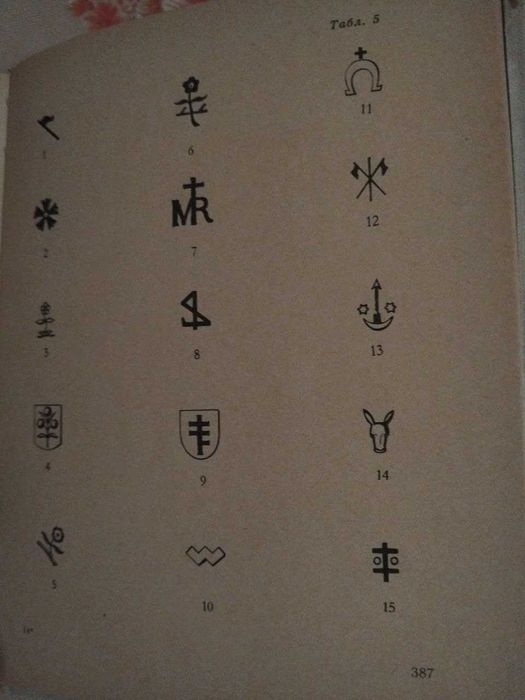 Табл. 5
1
2
3
4
5
6
MR
7
8
9
10
11
12
13
14
15
387